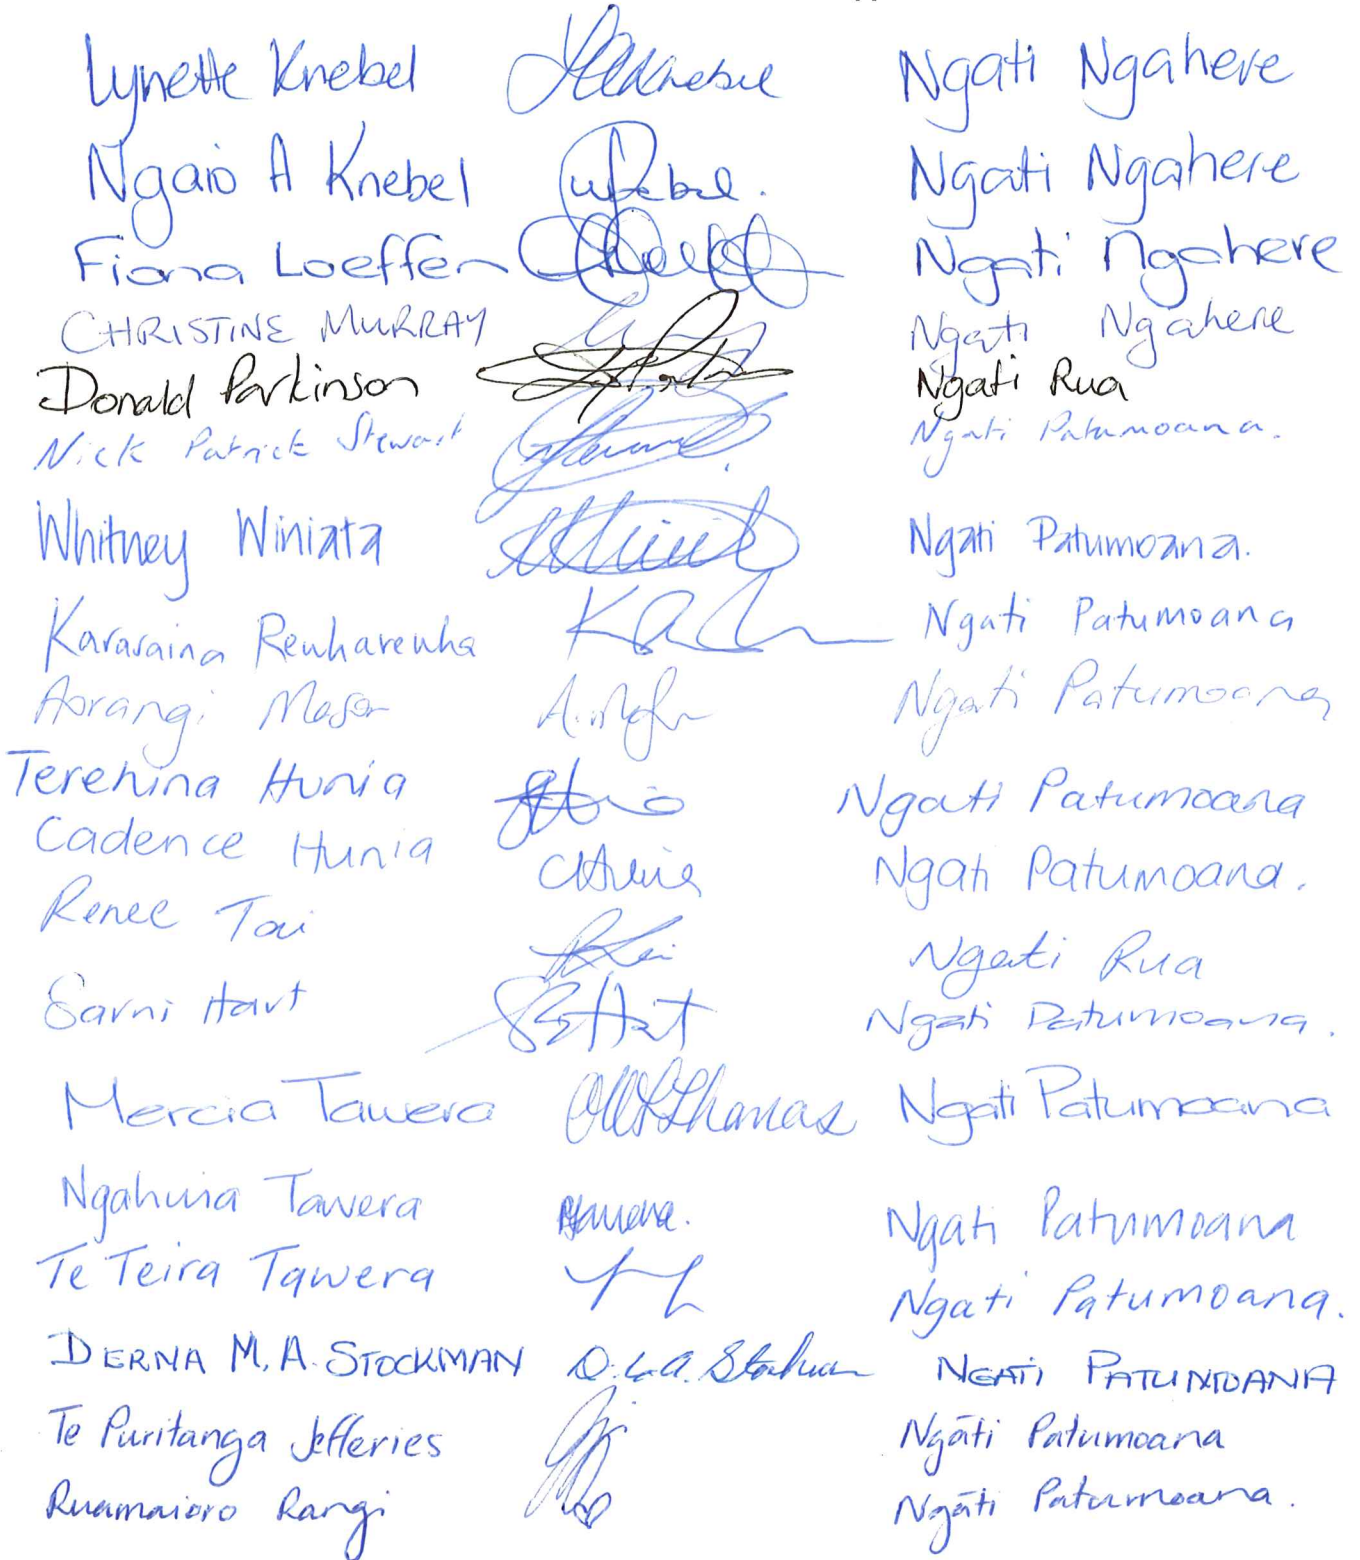 Lynette Knebel Knebel Ngati Ngahere
Ngaio A Knebel Ngati Ngahere
Fiona Loeffen Ngati Ngahere
CHRISTINE MURRAY Ngati Ngahere
Donald Parkinson Ngati Rua
Nick Patrick Stewart Ngati Patumoana.
Whitney Winiata Ngati Patumoana.
Kararaina Reuhareuha Ngati Patumoana
Aorangi Mason Ngati Patumoana
Terehina Hunia Ngati Patumoana
Cadence Hunia CHunia Ngati Patumoana.
Renee Tai Ngati Rua
Sarni Hart Hart Ngati Patumoana.
Mercia Tawera Thomas Ngati Patumoana
Ngahuia Tawera Ngati Patumoana
Te Teira Tawera Ngati Patumoana.
DERNA M.A. STOCKMAN Stockman NGATI PATUMOANA
Te Puritanga Jefferies Ngāti Patumoana
Ruamaioro Rangi Ngāti Patumoana.